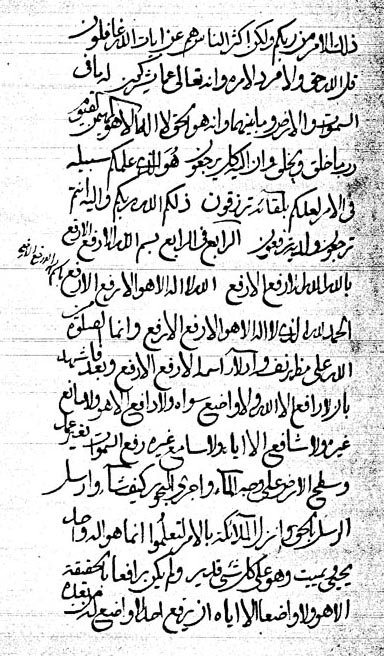 ذلك الامر من ربكم ولكن اكثر الناس هم عن ايات الله غافلون
قل الله حق والا فرد الامره وانه تعالى عما يشركون له ما فى
السموت والارض وما بينهما وانه هو الحق لا اله الا هو المهيمن القيوم
وما خلق ويخلق وان اليه كل يرجعون هو الذى علمكم سبيله
فى الامر لعلكم بلقائه ترزقون ذلكم الله ربكم واليه انتم
ترجعون الرابع فى الرابع بسم الله الارفع الارفع
بالله الله الارفع الارفع الله لا اله الا هو الارفع الارفع
الحمد لله الذى لا اله الا هو الارفع الارفع وانما الصلوة من
الله على مظهر نفسه واداد اسمه الارفع الارفع وبعد فاشهد
بان لا رافع الا الله ولا واضع سواه ولا دافع الا هو ولا مانع
غيره ولا شافع الا اياه ولا سامع غيره رفع السموات بغير عمد
وسطح الارض على وجه الماء واجرى البحور كيف شاء وارسل
الرسل بالحق وانزل الملائكة بالامر لتعلموا انما هو اله واحد
يحيى ويميت وهو على كل شئ قدير ولم يكن رافعا بالحقيقة
الا هو ولا واضعا الا اياه ان يرفع احدا لا واضع له من بعده